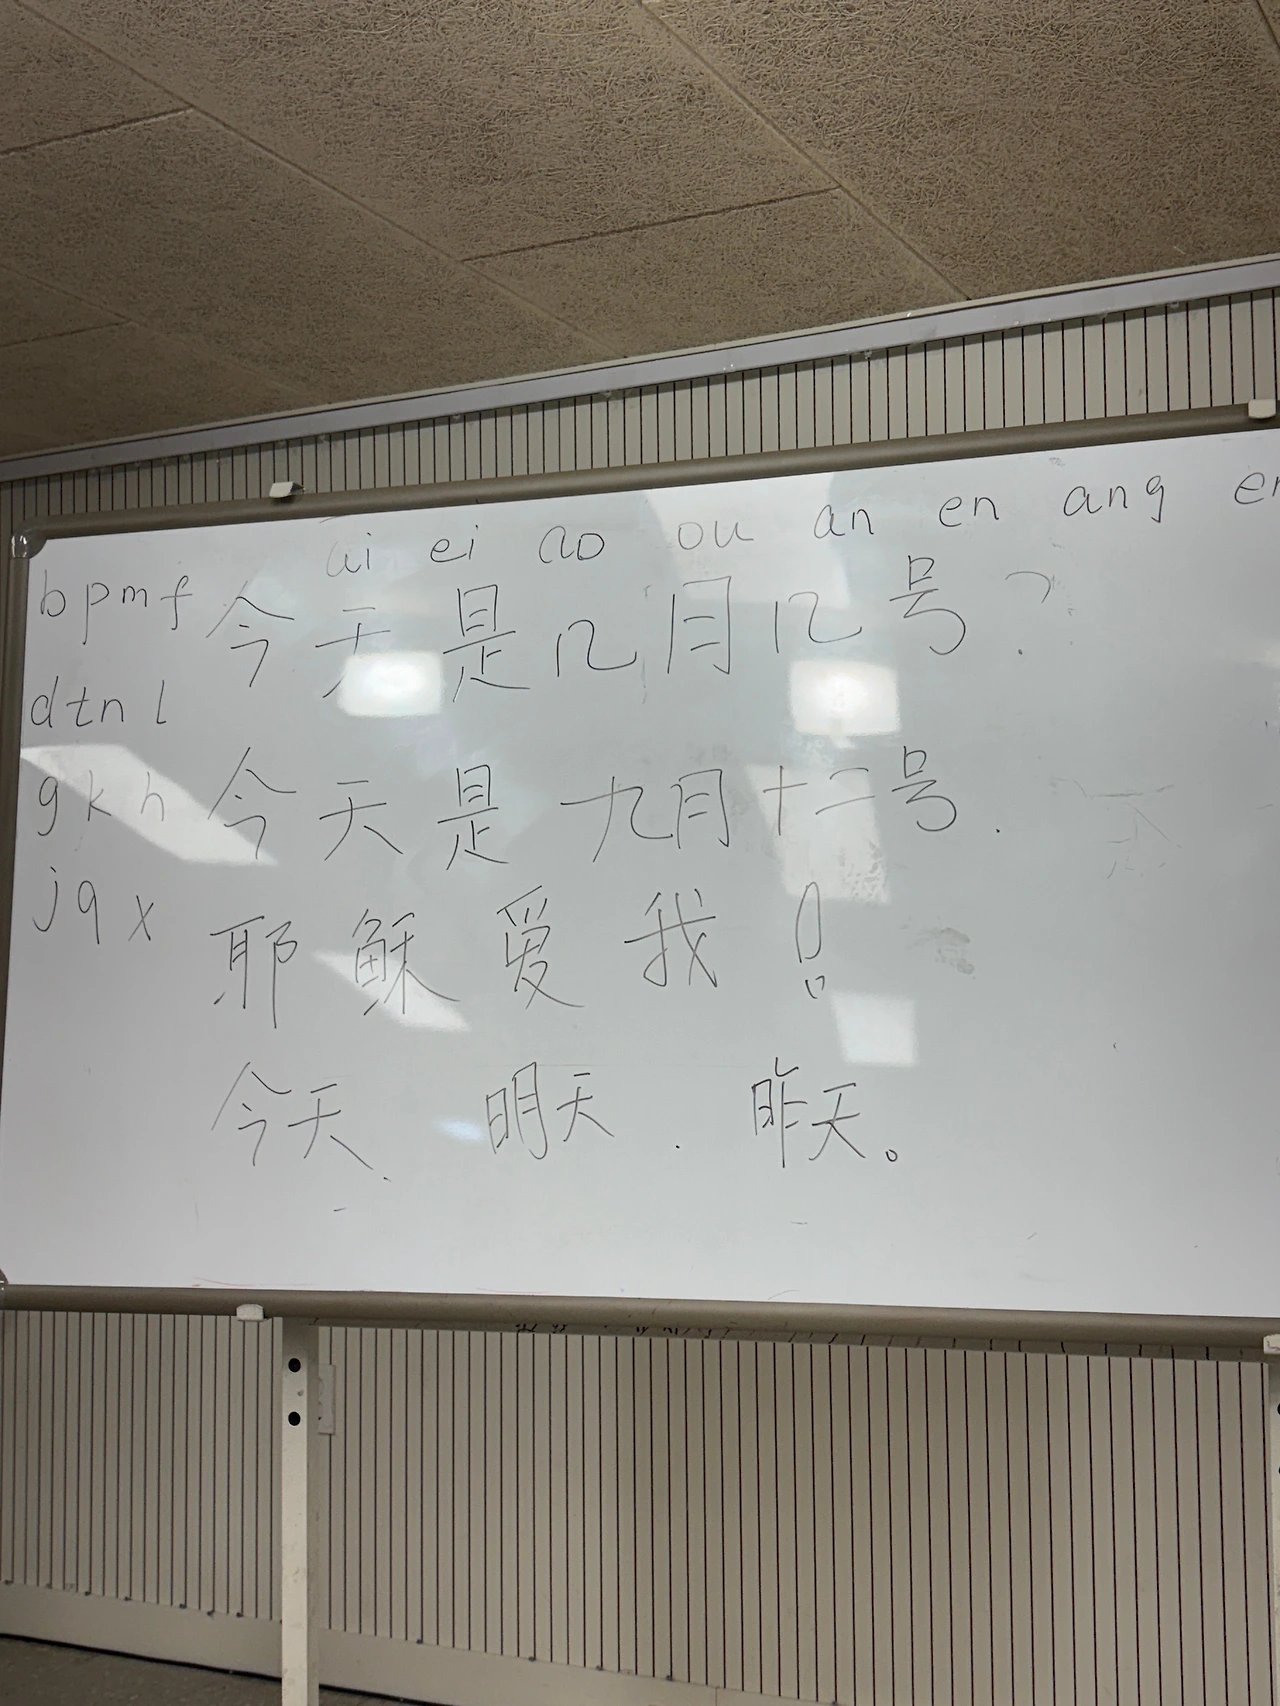 ai ei ao ou an en ang
b p m f 今天是几月几号?
d t n l
g k h 今天是九月十二号.
j q x 耶稣爱我!
今天. 明天. 昨天。